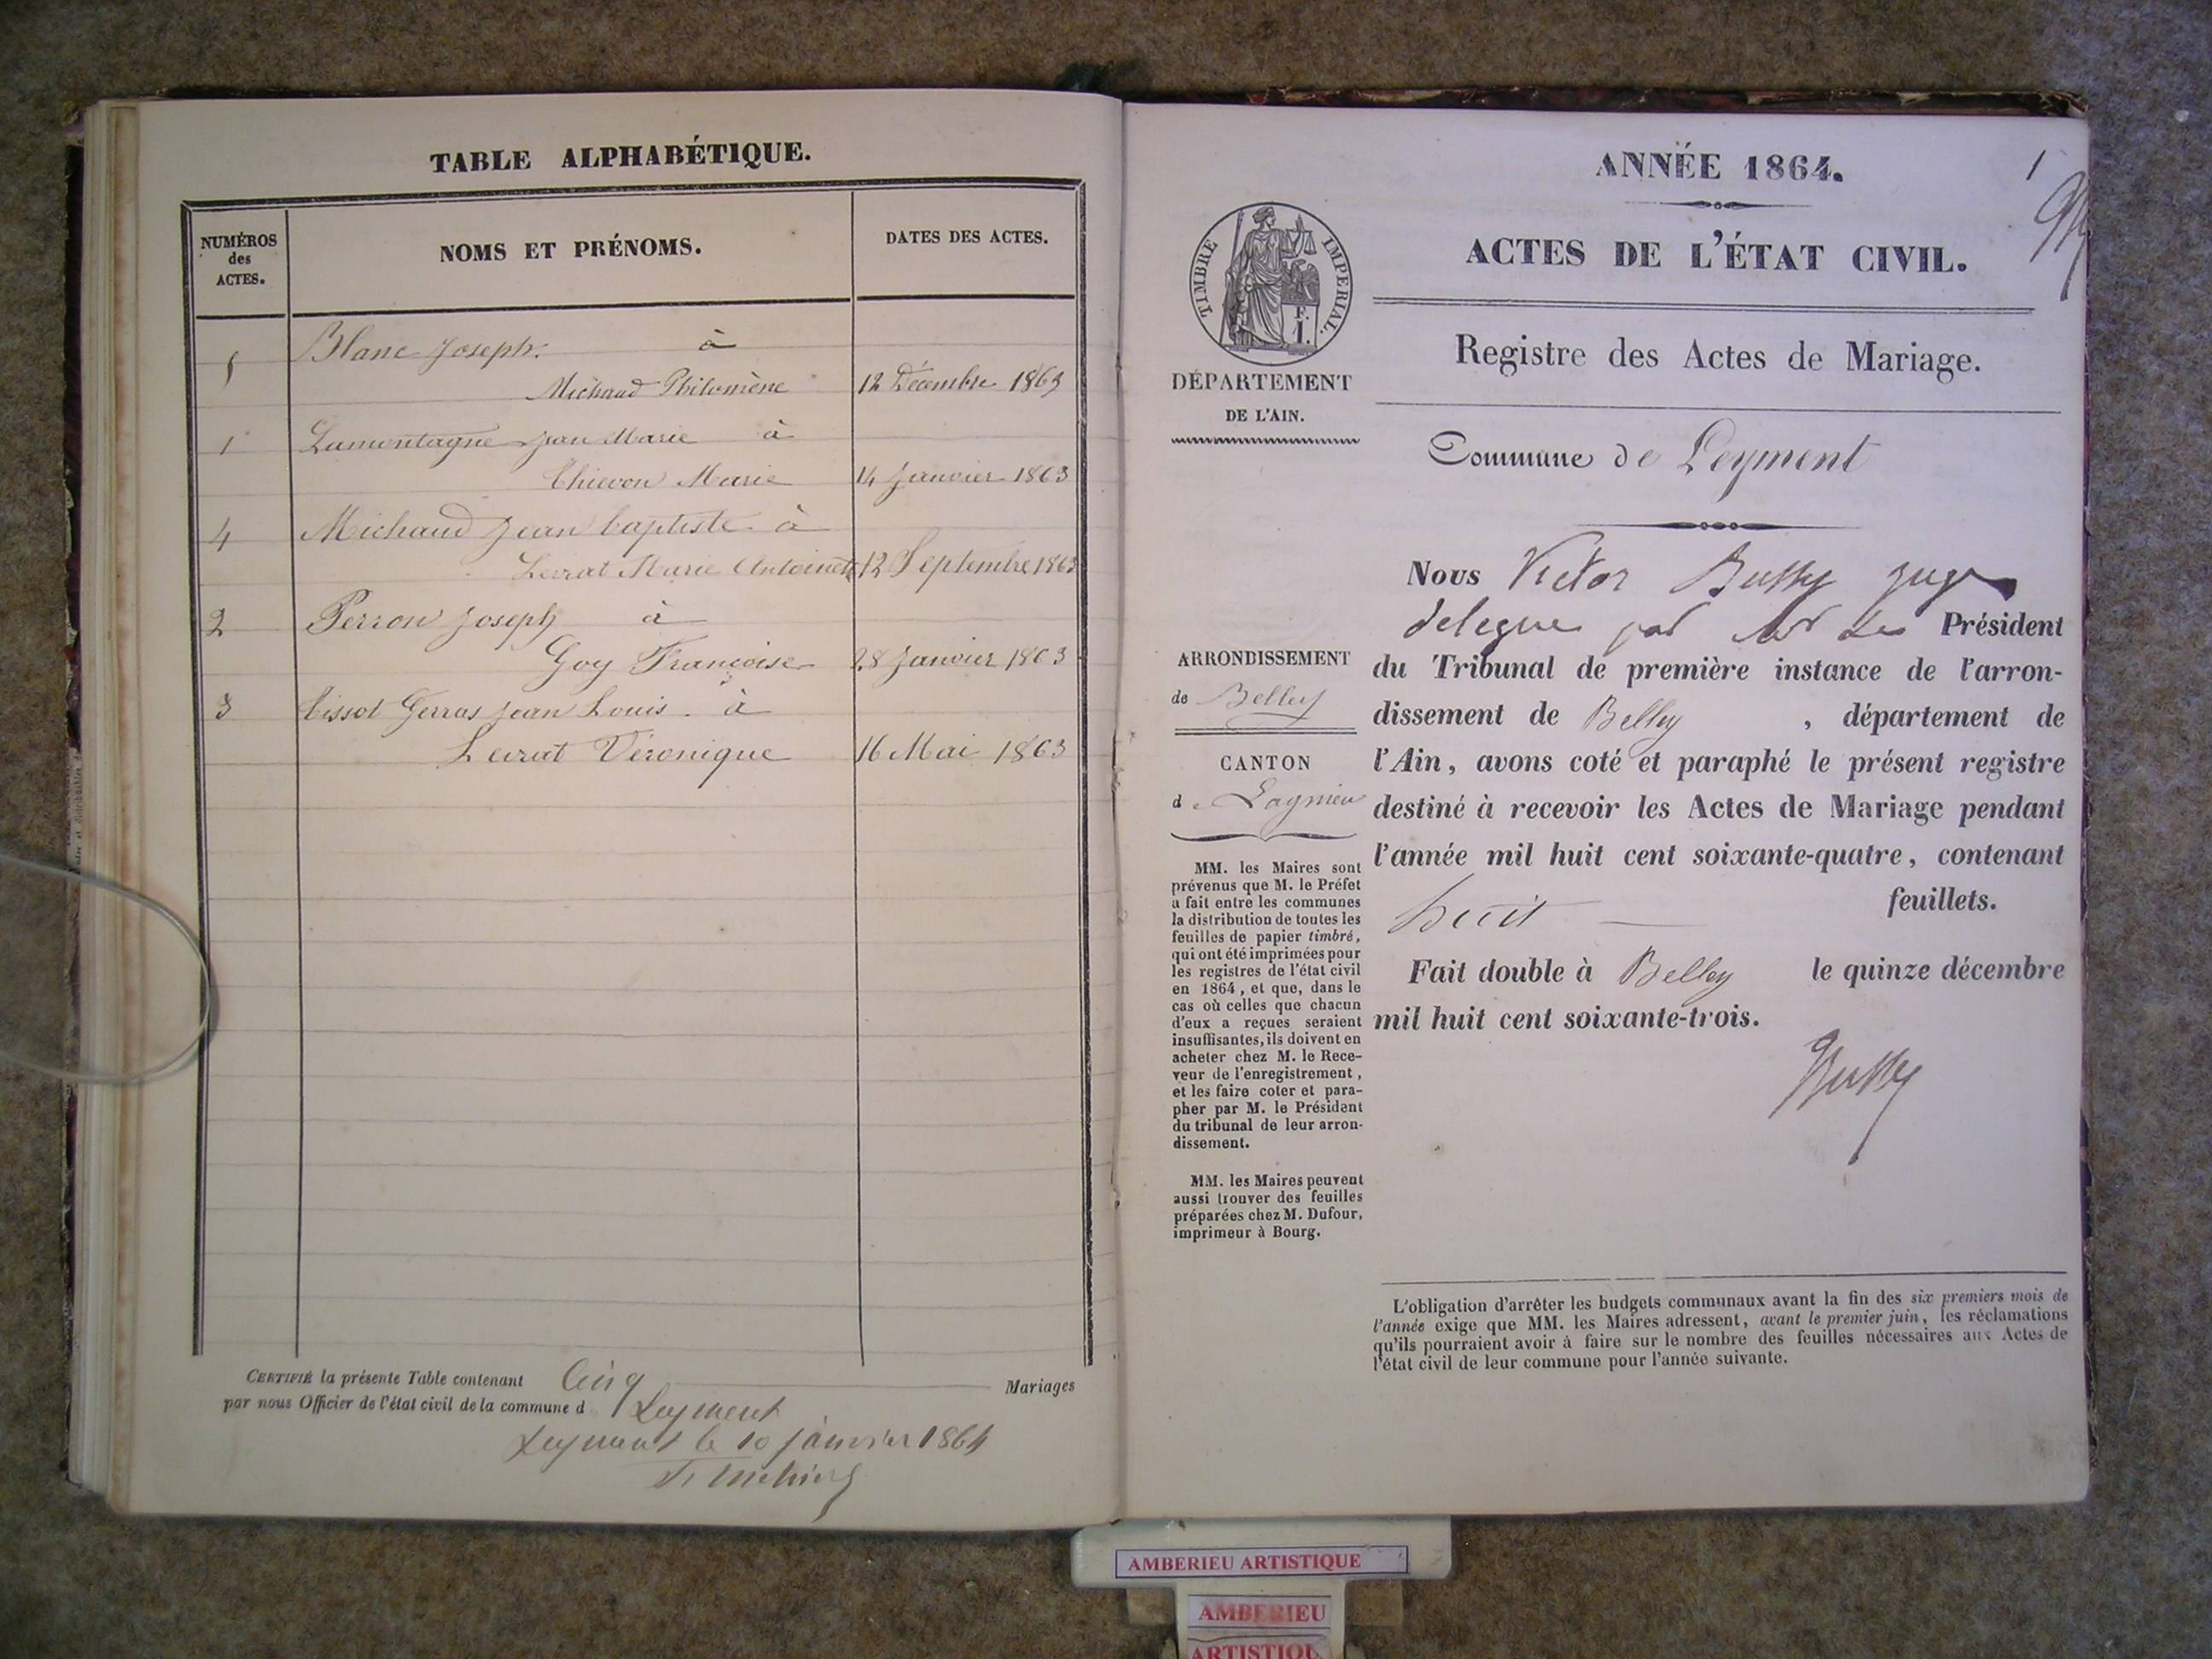 TABLE ALPHABÉTIQUE.
NUMÉROS
des
ACTES.
NOMS ET PRÉNOMS.
DATES DES ACTES.
5 Blanc Joseph. à
Michaud Philomène 12 Décembre 1863
1 Lamontagne Jean Marie à
Thievon Marie 14 Janvier 1863
4 Michaud Jean baptiste à
Leirat Marie Antoinette 12 Septembre 1863
2 Perron Joseph à
Goy Françoise 28 Janvier 1863
3 Tissot Gerras Jean Louis. à
Leirat Véronique 16 Mai 1863
CERTIFIÉ la présente Table contenant Cinq Mariages
par nous Officier de l'état civil de la commune d Leyment
Leyment le 10 janvier 1864
ANNÉE 1864.
1
ACTES DE L'ÉTAT CIVIL.
TIMBRE IMPÉRIAL.
F. 1.
Registre des Actes de Mariage.
DÉPARTEMENT
DE L'AIN.
Commune de Leyment
Nous Victor Bussy juge
delegue par Mr Le Président
du Tribunal de première instance de l'arron-
dissement de Belley , département de
l'Ain, avons coté et paraphé le présent registre
destiné à recevoir les Actes de Mariage pendant
l'année mil huit cent soixante-quatre, contenant
huit feuillets.
Fait double à Belley le quinze décembre
mil huit cent soixante-trois.
Bussy
ARRONDISSEMENT
de Belley
CANTON
de Lagnieu
MM. les Maires sont
prévenus que M. le Préfet
a fait entre les communes
la distribution de toutes les
feuilles de papier timbré,
qui ont été imprimées pour
les registres de l'état civil
en 1864, et que, dans le
cas où celles que chacun
d'eux a reçues seraient
insuffisantes, ils doivent en
acheter chez M. le Rece-
veur de l'enregistrement,
et les faire coter et para-
pher par M. le Président
du tribunal de leur arron-
dissement.
MM. les Maires peuvent
aussi trouver des feuilles
préparées chez M. Dufour,
imprimeur à Bourg.
L'obligation d'arrêter les budgets communaux avant la fin des six premiers mois de
l'année exige que MM. les Maires adressent, avant le premier juin, les réclamations
qu'ils pourraient avoir à faire sur le nombre des feuilles nécessaires aux Actes de
l'état civil de leur commune pour l'année suivante.
AMBERIEU ARTISTIQUE
AMBERIEU
ARTISTIQU